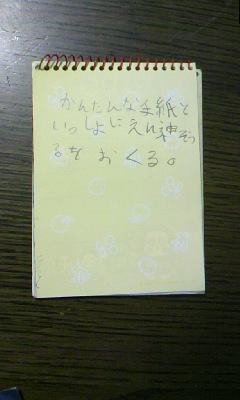 かんたんな手紙と
いっしょにえれ神ぞ
るを おくる。